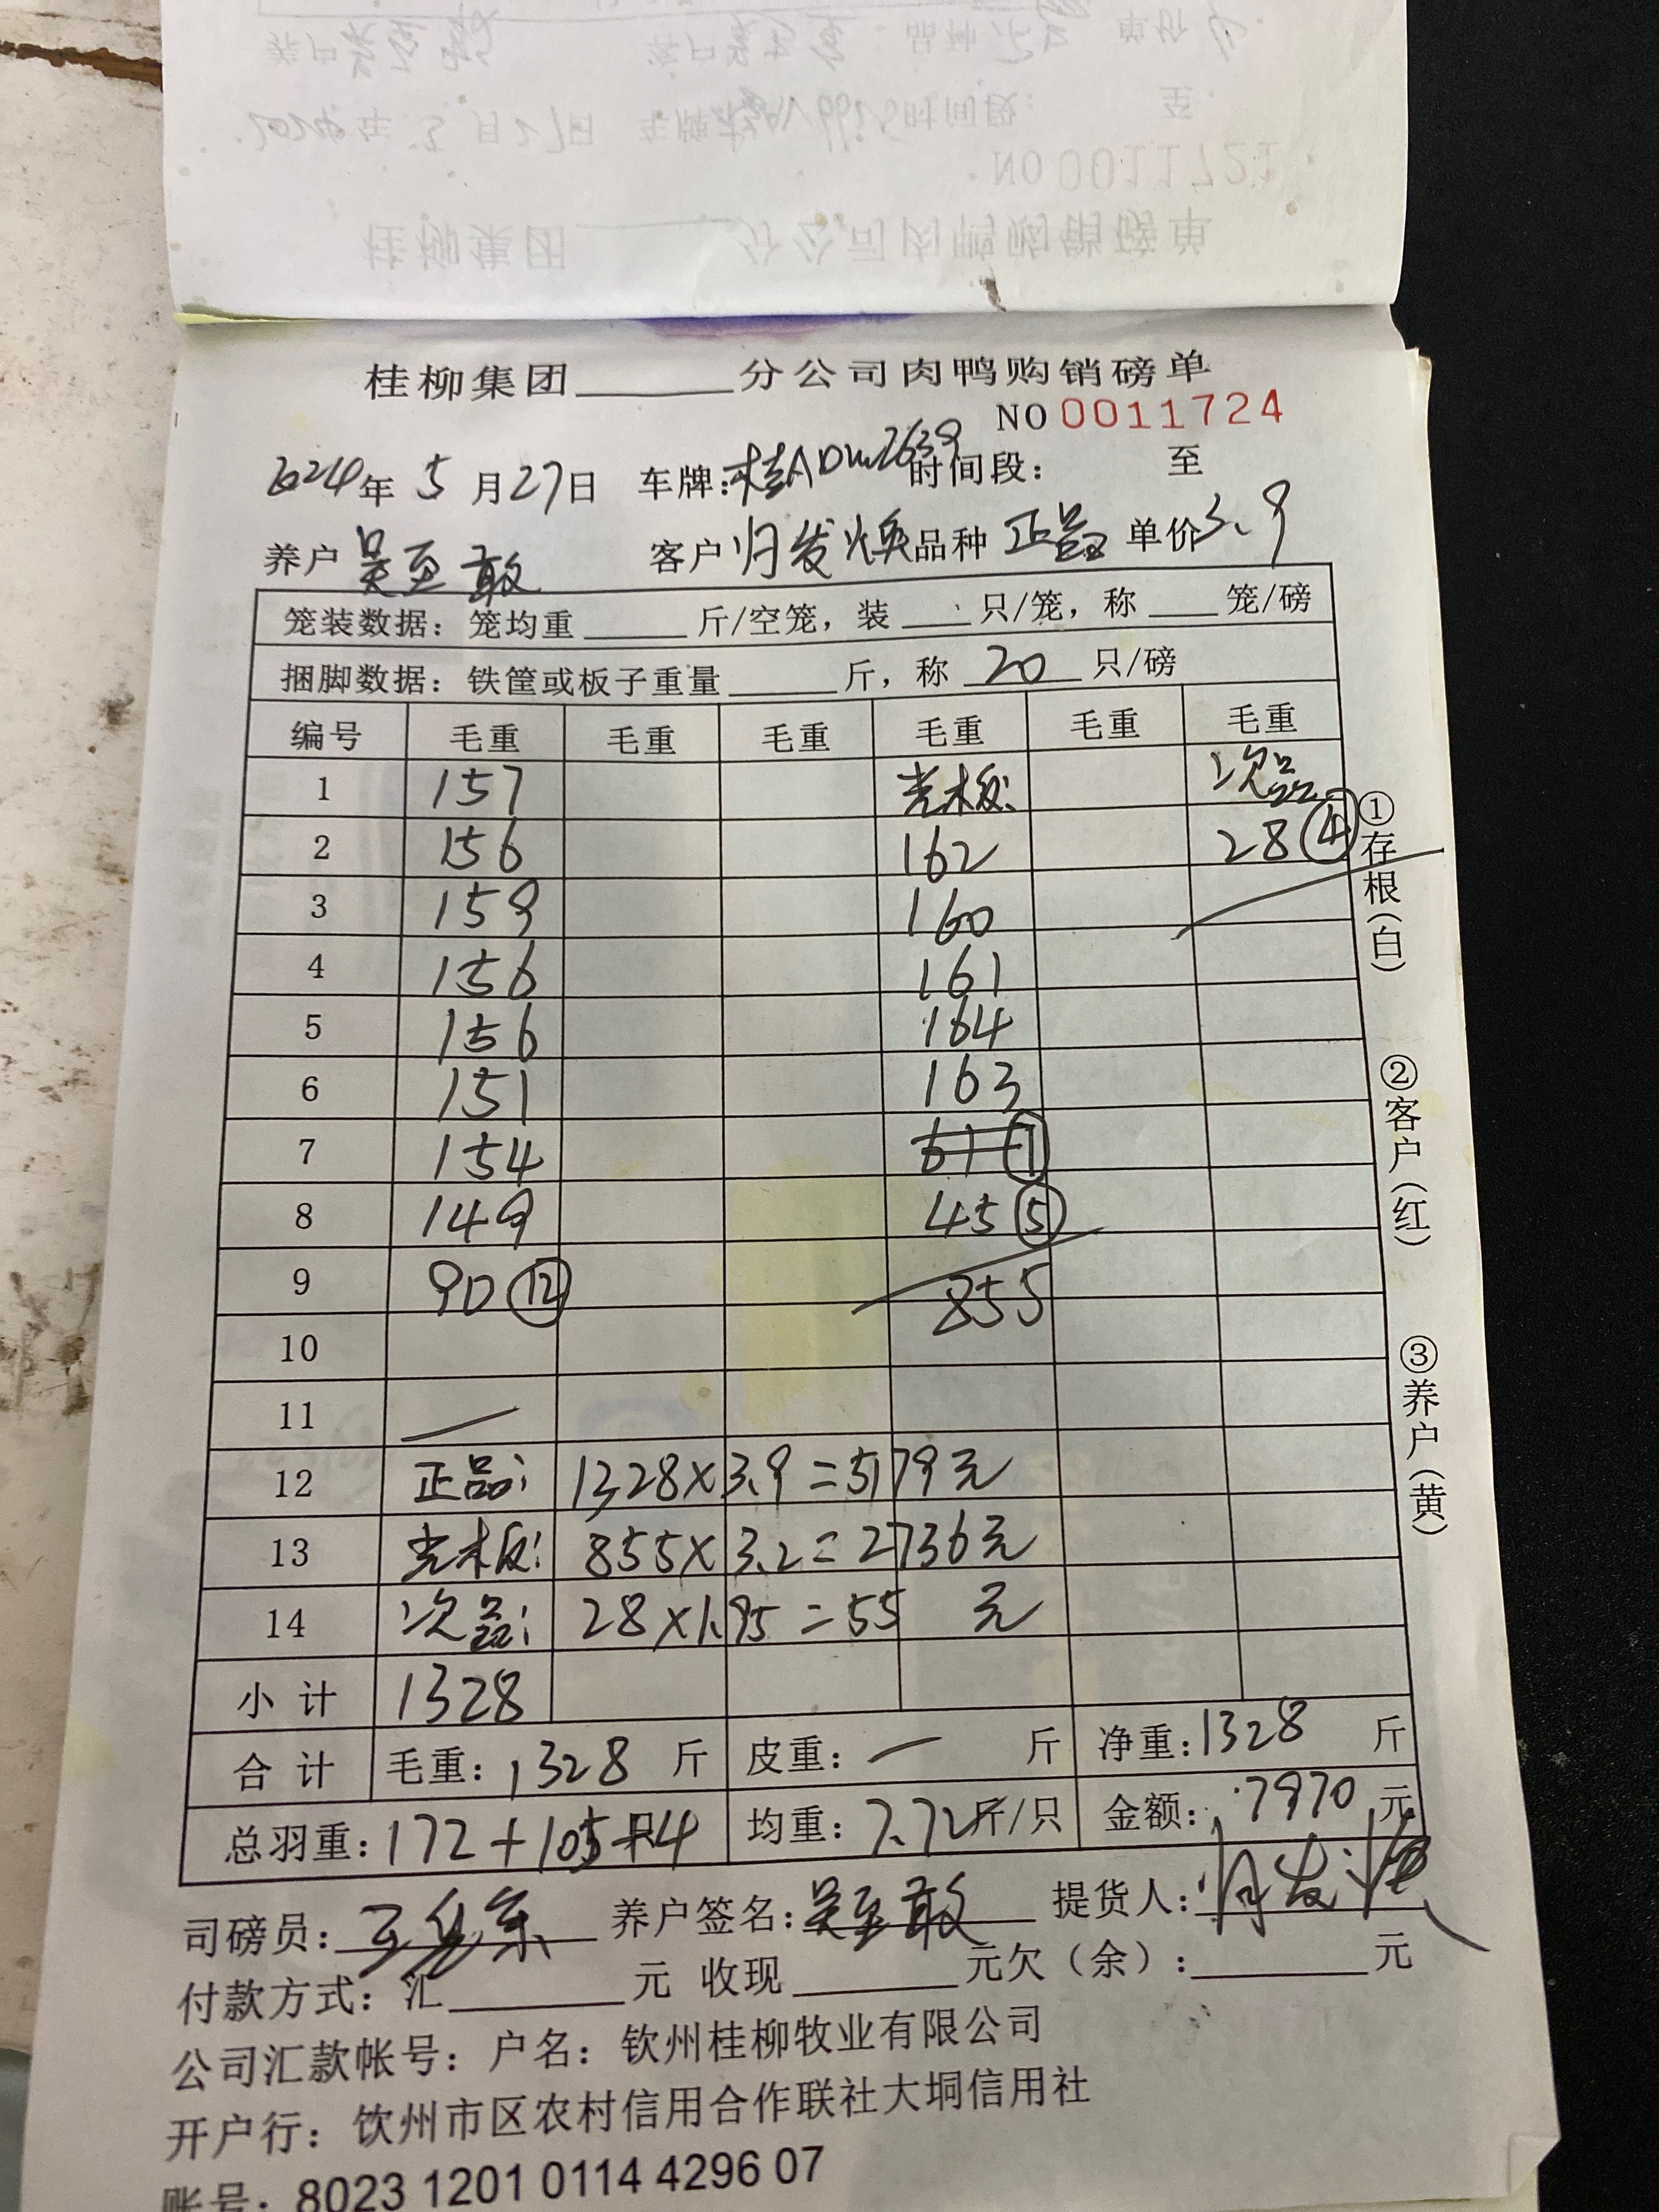 NO 0011721
桂柳集团______分公司肉鸭购销磅单
NO 0011724
2024年 5 月27日 车牌:桂ADM2639 时间段: 至
养户 吴至敢 客户 归发焕 品种 正品 单价3.9
笼装数据: 笼均重 ______ 斤/空笼, 装 ____ 只/笼, 称 ____ 笼/磅
捆脚数据: 铁筐或板子重量 ______ 斤, 称 20 只/磅
编号 毛重 毛重 毛重 毛重 毛重 毛重
1 157 光板: 次品
2 156 162 28 ④
3 159 160
4 156 161
5 156 164
6 151 163
7 154 61 ⑦
8 149 45 ⑤
9 90 ⑫ 855
10
11 —
12 正品: 1328×3.9=5179元
13 光板: 855×3.2=2736元
14 次品: 28×1.95=55 元
小 计 1328
合 计 毛重: 1328 斤 皮重: — 斤 净重:1328 斤
总羽重:172+105+4 只 均重: 7.72斤/只 金额: 7970 元
司磅员: 养户签名:吴至敢 提货人:归发焕
付款方式: 汇______元 收现______元欠(余):______元
公司汇款帐号: 户名: 钦州桂柳牧业有限公司
开户行: 钦州市区农村信用合作联社大垌信用社
账号: 8023 1201 0114 4296 07
①存根(白)
②客户(红)
③养户(黄)